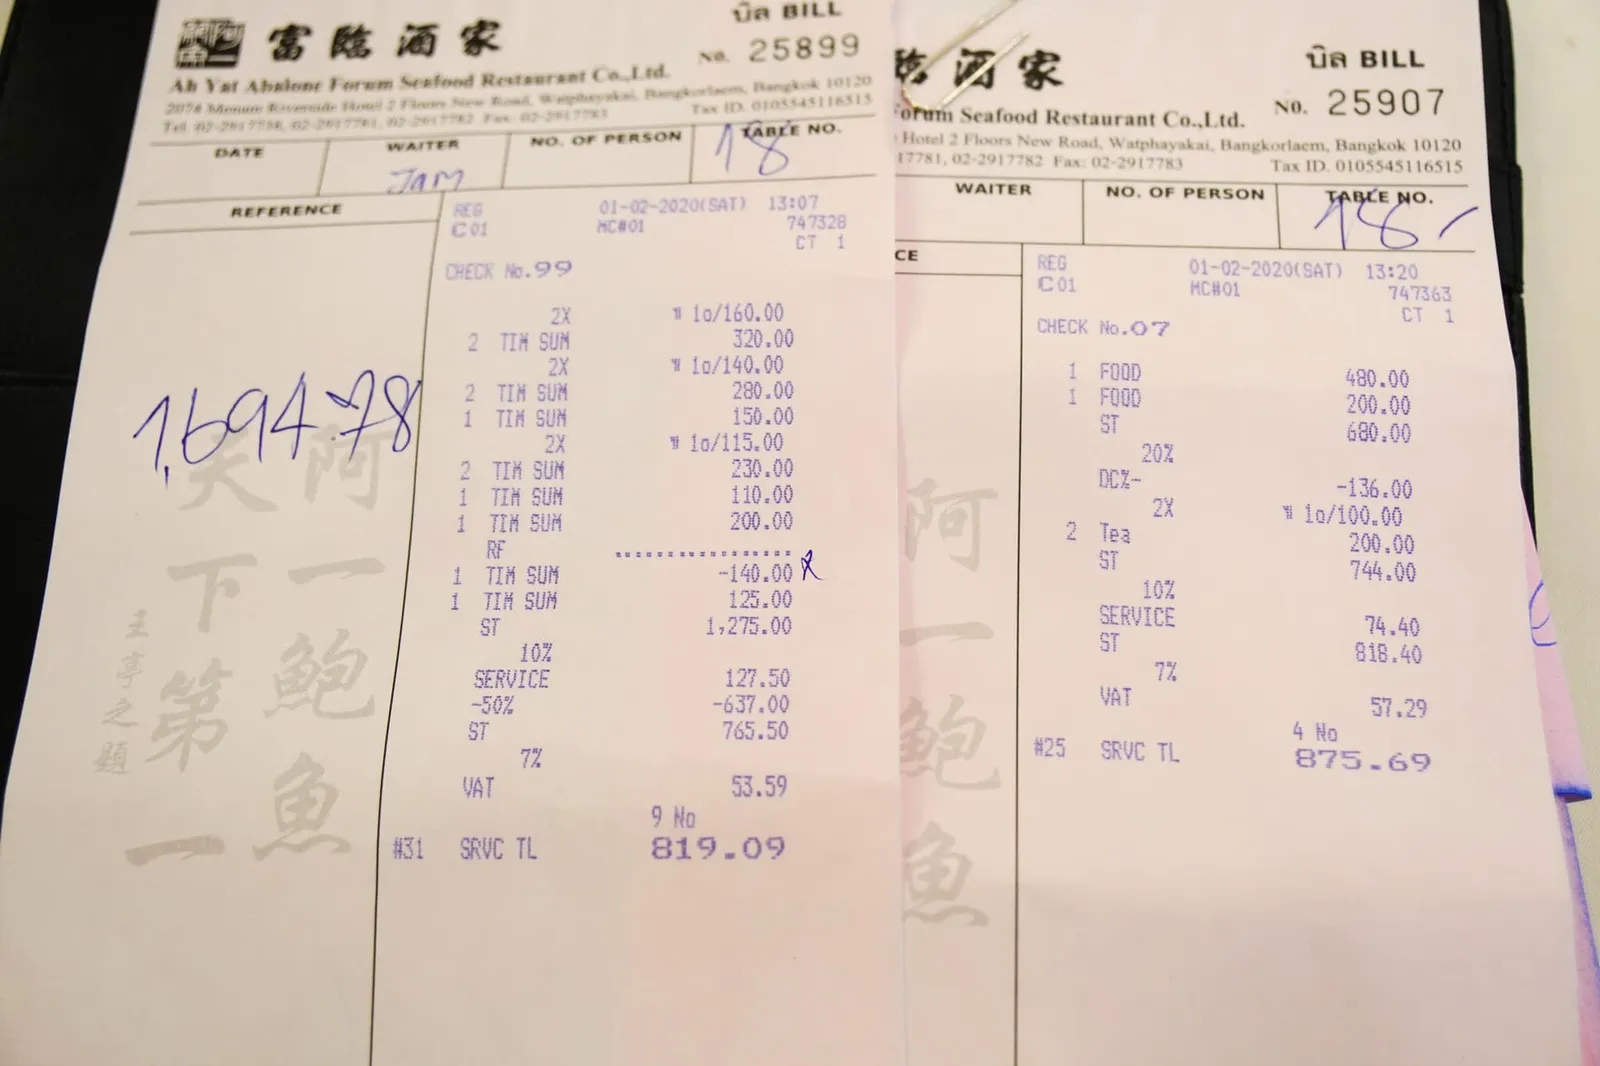 富臨酒家
บิล BILL
No. 25899
Ah Yat Abalone Forum Seafood Restaurant Co.,Ltd.
2074 Menam Riverside Hotel 2 Floors New Road, Watphayakai, Bangkorlaem, Bangkok 10120
Tel. 02-2917738, 02-2917781, 02-2917782 Fax: 02-2917783 Tax ID. 0105545116515
DATE WAITER NO. OF PERSON TABLE NO.
Jam 18
REFERENCE
REG 01-02-2020(SAT) 13:07
C01 MC#01 747328
CT 1
CHECK No.99
2X 1@/160.00
2 TIM SUM 320.00
2X 1@/140.00
2 TIM SUM 280.00
1 TIM SUM 150.00
2X 1@/115.00
2 TIM SUM 230.00
1 TIM SUM 110.00
1 TIM SUM 200.00
RF ..................
1 TIM SUM -140.00
1 TIM SUM 125.00
ST 1,275.00
10%
SERVICE 127.50
-50% -637.00
ST 765.50
7%
VAT 53.59
9 No
#31 SRVC TL 819.09
1,694.78
阿一鮑魚
天下第一
王亭之題
臨酒家
บิล BILL
No. 25907
Forum Seafood Restaurant Co.,Ltd.
Hotel 2 Floors New Road, Watphayakai, Bangkorlaem, Bangkok 10120
17781, 02-2917782 Fax: 02-2917783 Tax ID. 0105545116515
WAITER NO. OF PERSON TABLE NO.
18
CE
REG 01-02-2020(SAT) 13:20
C01 MC#01 747363
CT 1
CHECK No.07
1 FOOD 480.00
1 FOOD 200.00
ST 680.00
20%
DC%- -136.00
2X 1@/100.00
2 Tea 200.00
ST 744.00
10%
SERVICE 74.40
ST 818.40
7%
VAT 57.29
4 No
#25 SRVC TL 875.69
阿一鮑魚